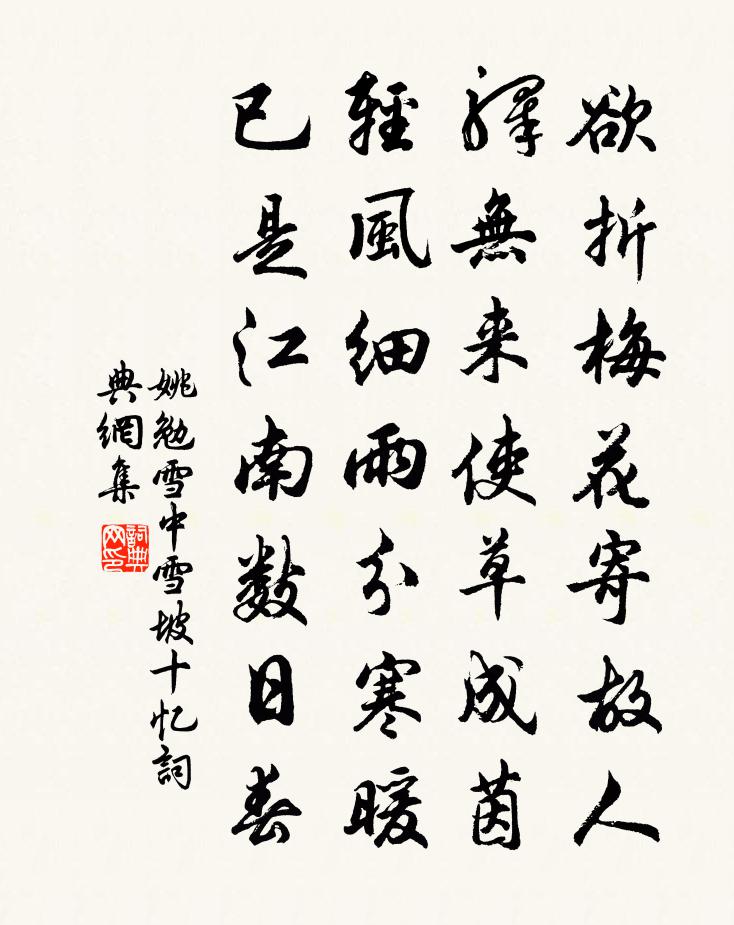 欲折梅花寄故人
驛無来使草成茵
輕風細雨分寒暖
已是江南數日春
姚勉雪中雪坡十忆詞
典網集
詞典
网印